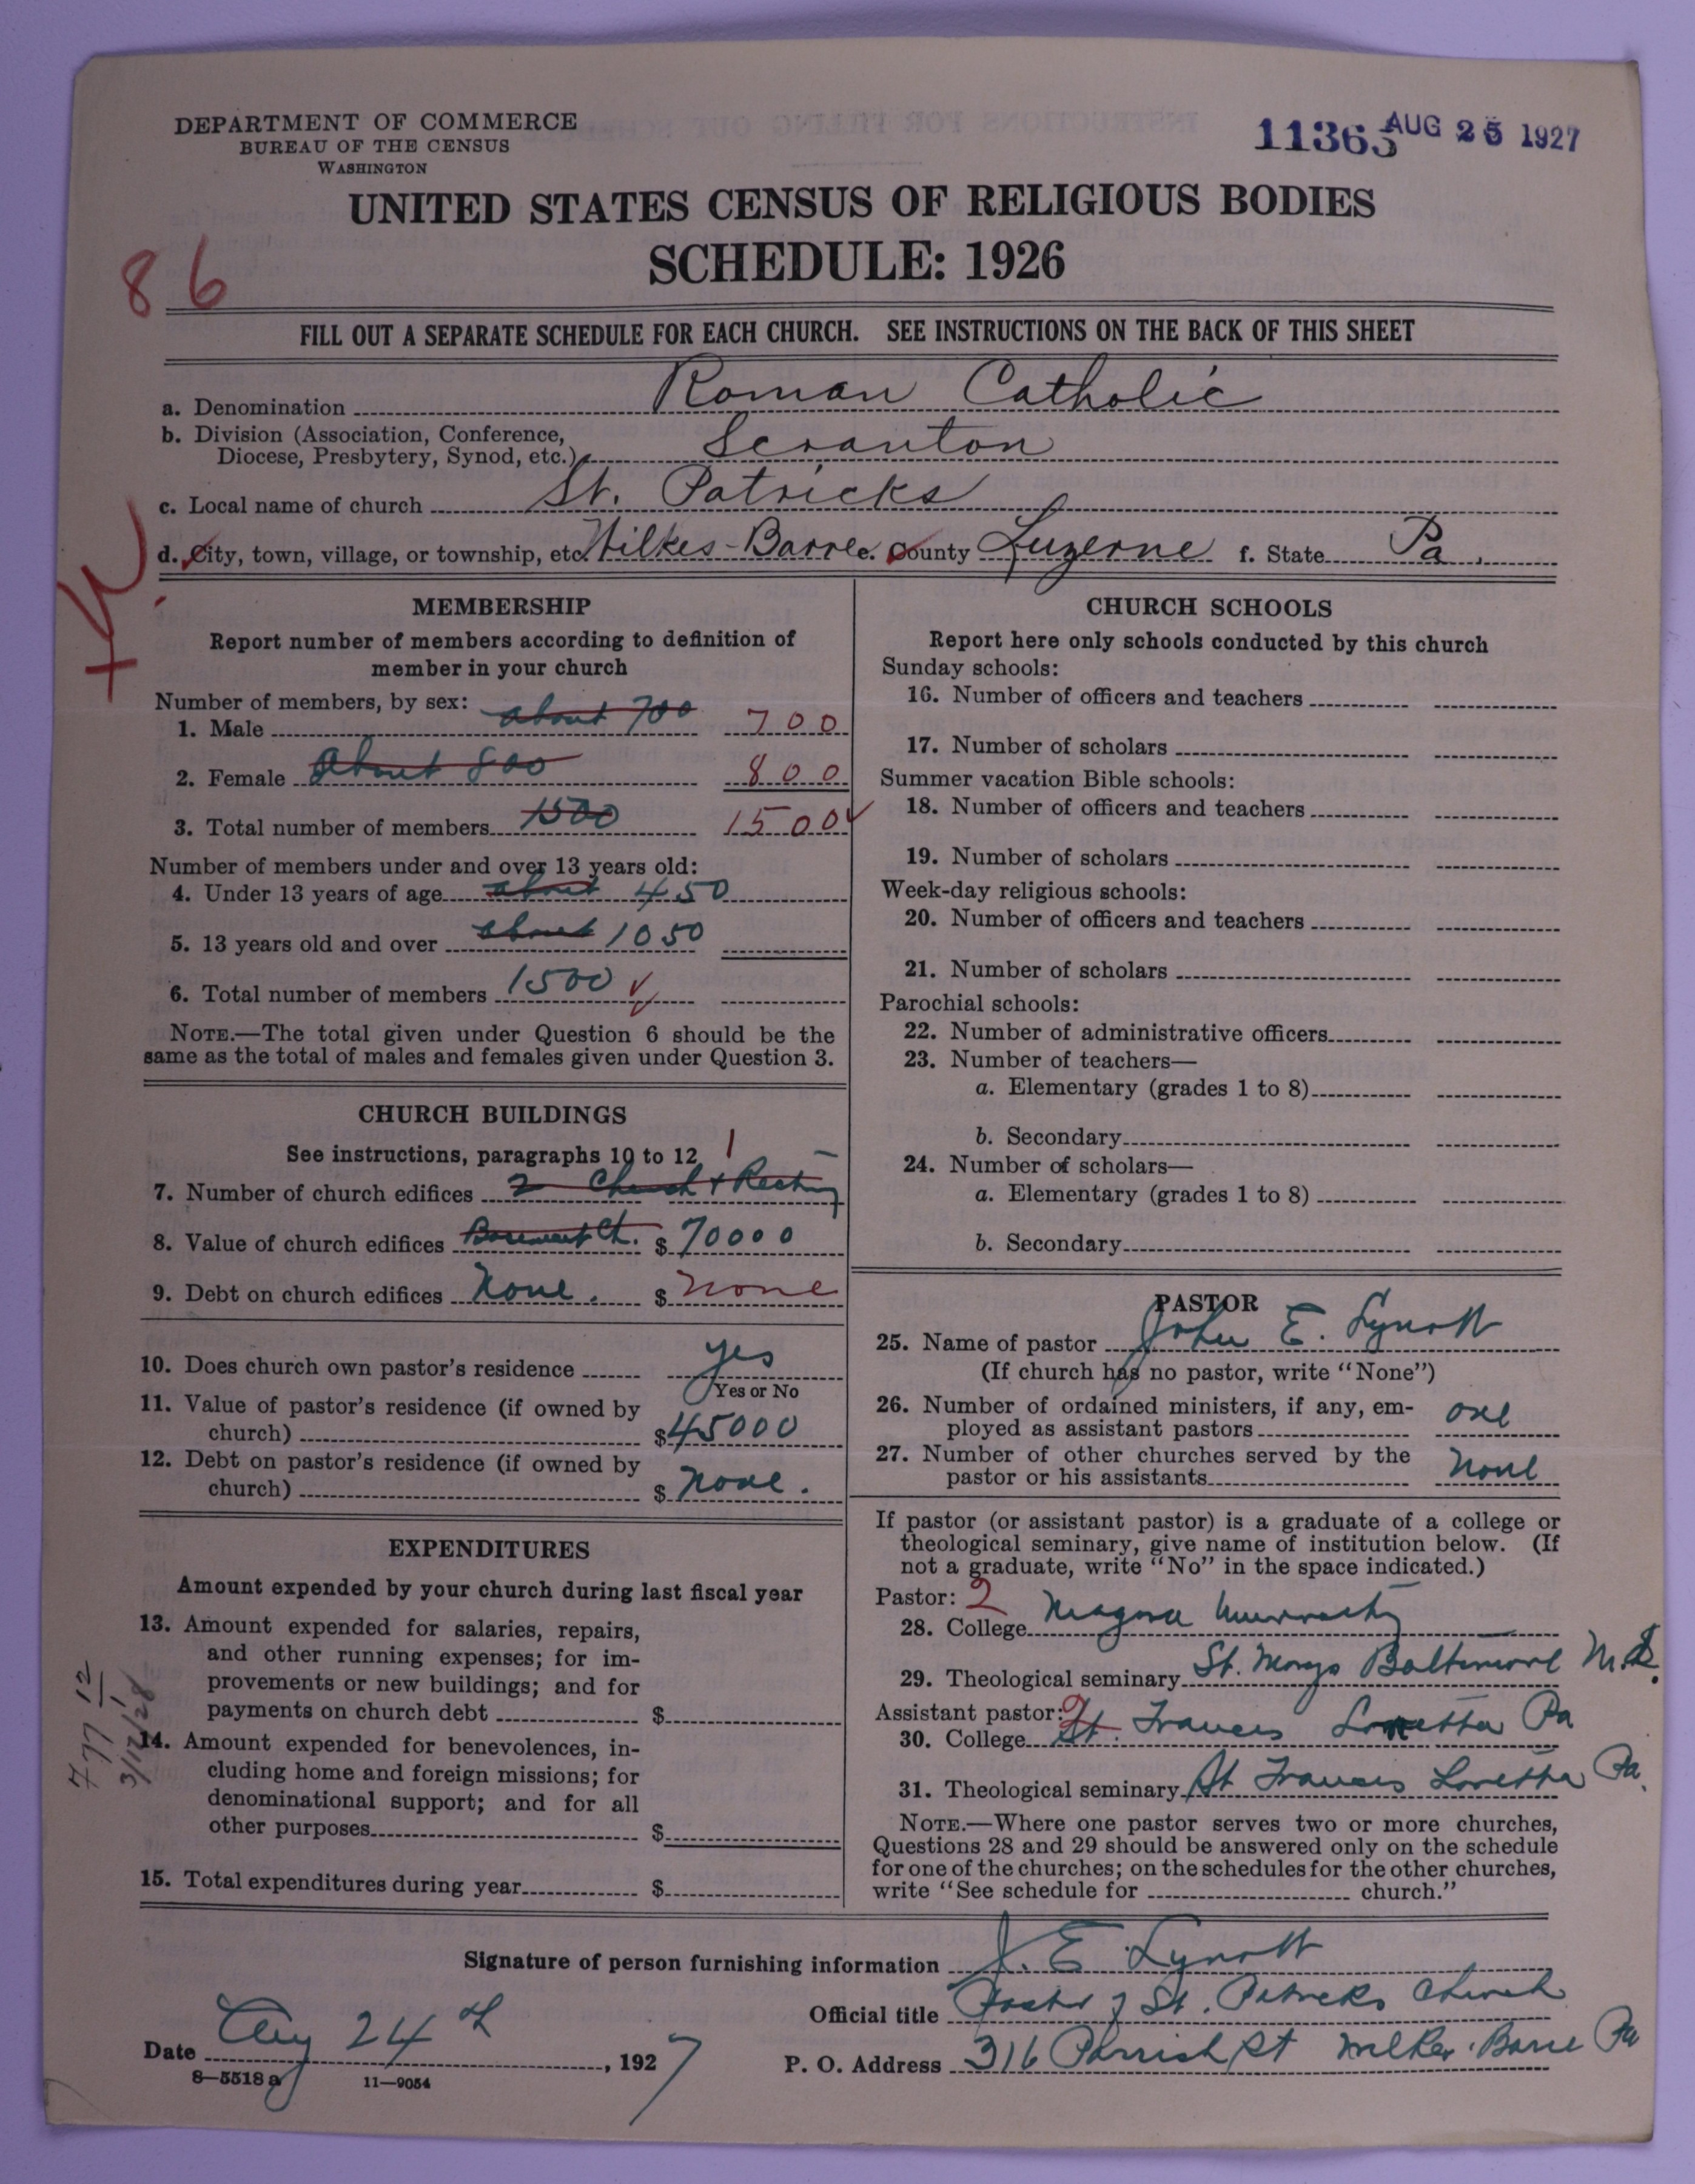 DEPARTMENT OF COMMERCE
BUREAU OF THE CENSUS
WASHINGTON
11365 AUG 25 1927
UNITED STATES CENSUS OF RELIGIOUS BODIES
SCHEDULE: 1926
86
FILL OUT A SEPARATE SCHEDULE FOR EACH CHURCH. SEE INSTRUCTIONS ON THE BACK OF THIS SHEET
a. Denomination Roman Catholic
b. Division (Association, Conference,
Diocese, Presbytery, Synod, etc.) Scranton
c. Local name of church St. Patricks
d. City, town, village, or township, etc. Wilkes-Barre e. County Luzerne f. State Pa.
MEMBERSHIP
Report number of members according to definition of
member in your church
Number of members, by sex:
1. Male about 700 700
2. Female about 800 800
3. Total number of members 1500 1500
Number of members under and over 13 years old:
4. Under 13 years of age about 450
5. 13 years old and over about 1050
6. Total number of members 1500
NOTE.—The total given under Question 6 should be the
same as the total of males and females given under Question 3.
CHURCH BUILDINGS
See instructions, paragraphs 10 to 12 1
7. Number of church edifices 2 Church + Rectory
8. Value of church edifices Basement Ch. $ 70000
9. Debt on church edifices None. $ none
10. Does church own pastor's residence yes
Yes or No
11. Value of pastor's residence (if owned by
church) $ 45000
12. Debt on pastor's residence (if owned by
church) $ none.
EXPENDITURES
Amount expended by your church during last fiscal year
13. Amount expended for salaries, repairs,
and other running expenses; for im-
provements or new buildings; and for
payments on church debt $
14. Amount expended for benevolences, in-
cluding home and foreign missions; for
denominational support; and for all
other purposes $
15. Total expenditures during year $
3/12/28
CHURCH SCHOOLS
Report here only schools conducted by this church
Sunday schools:
16. Number of officers and teachers
17. Number of scholars
Summer vacation Bible schools:
18. Number of officers and teachers
19. Number of scholars
Week-day religious schools:
20. Number of officers and teachers
21. Number of scholars
Parochial schools:
22. Number of administrative officers
23. Number of teachers—
a. Elementary (grades 1 to 8)
b. Secondary
24. Number of scholars—
a. Elementary (grades 1 to 8)
b. Secondary
PASTOR
25. Name of pastor John E. Lynott
(If church has no pastor, write "None")
26. Number of ordained ministers, if any, em-
ployed as assistant pastors one
27. Number of other churches served by the
pastor or his assistants none
If pastor (or assistant pastor) is a graduate of a college or
theological seminary, give name of institution below. (If
not a graduate, write "No" in the space indicated.)
Pastor: 2
28. College Niagara University
29. Theological seminary St. Marys Baltimore M.d.
Assistant pastor: 2
30. College St. Francis Loretta Pa
31. Theological seminary St Francis Loretta Pa.
NOTE.—Where one pastor serves two or more churches,
Questions 28 and 29 should be answered only on the schedule
for one of the churches; on the schedules for the other churches,
write "See schedule for church."
Signature of person furnishing information J. E. Lynott
Official title Pastor of St. Patricks Church
Date Aug 24th, 1927
P. O. Address 316 Parrish St Wilkes-Barre Pa
8—5518 a 11—9054